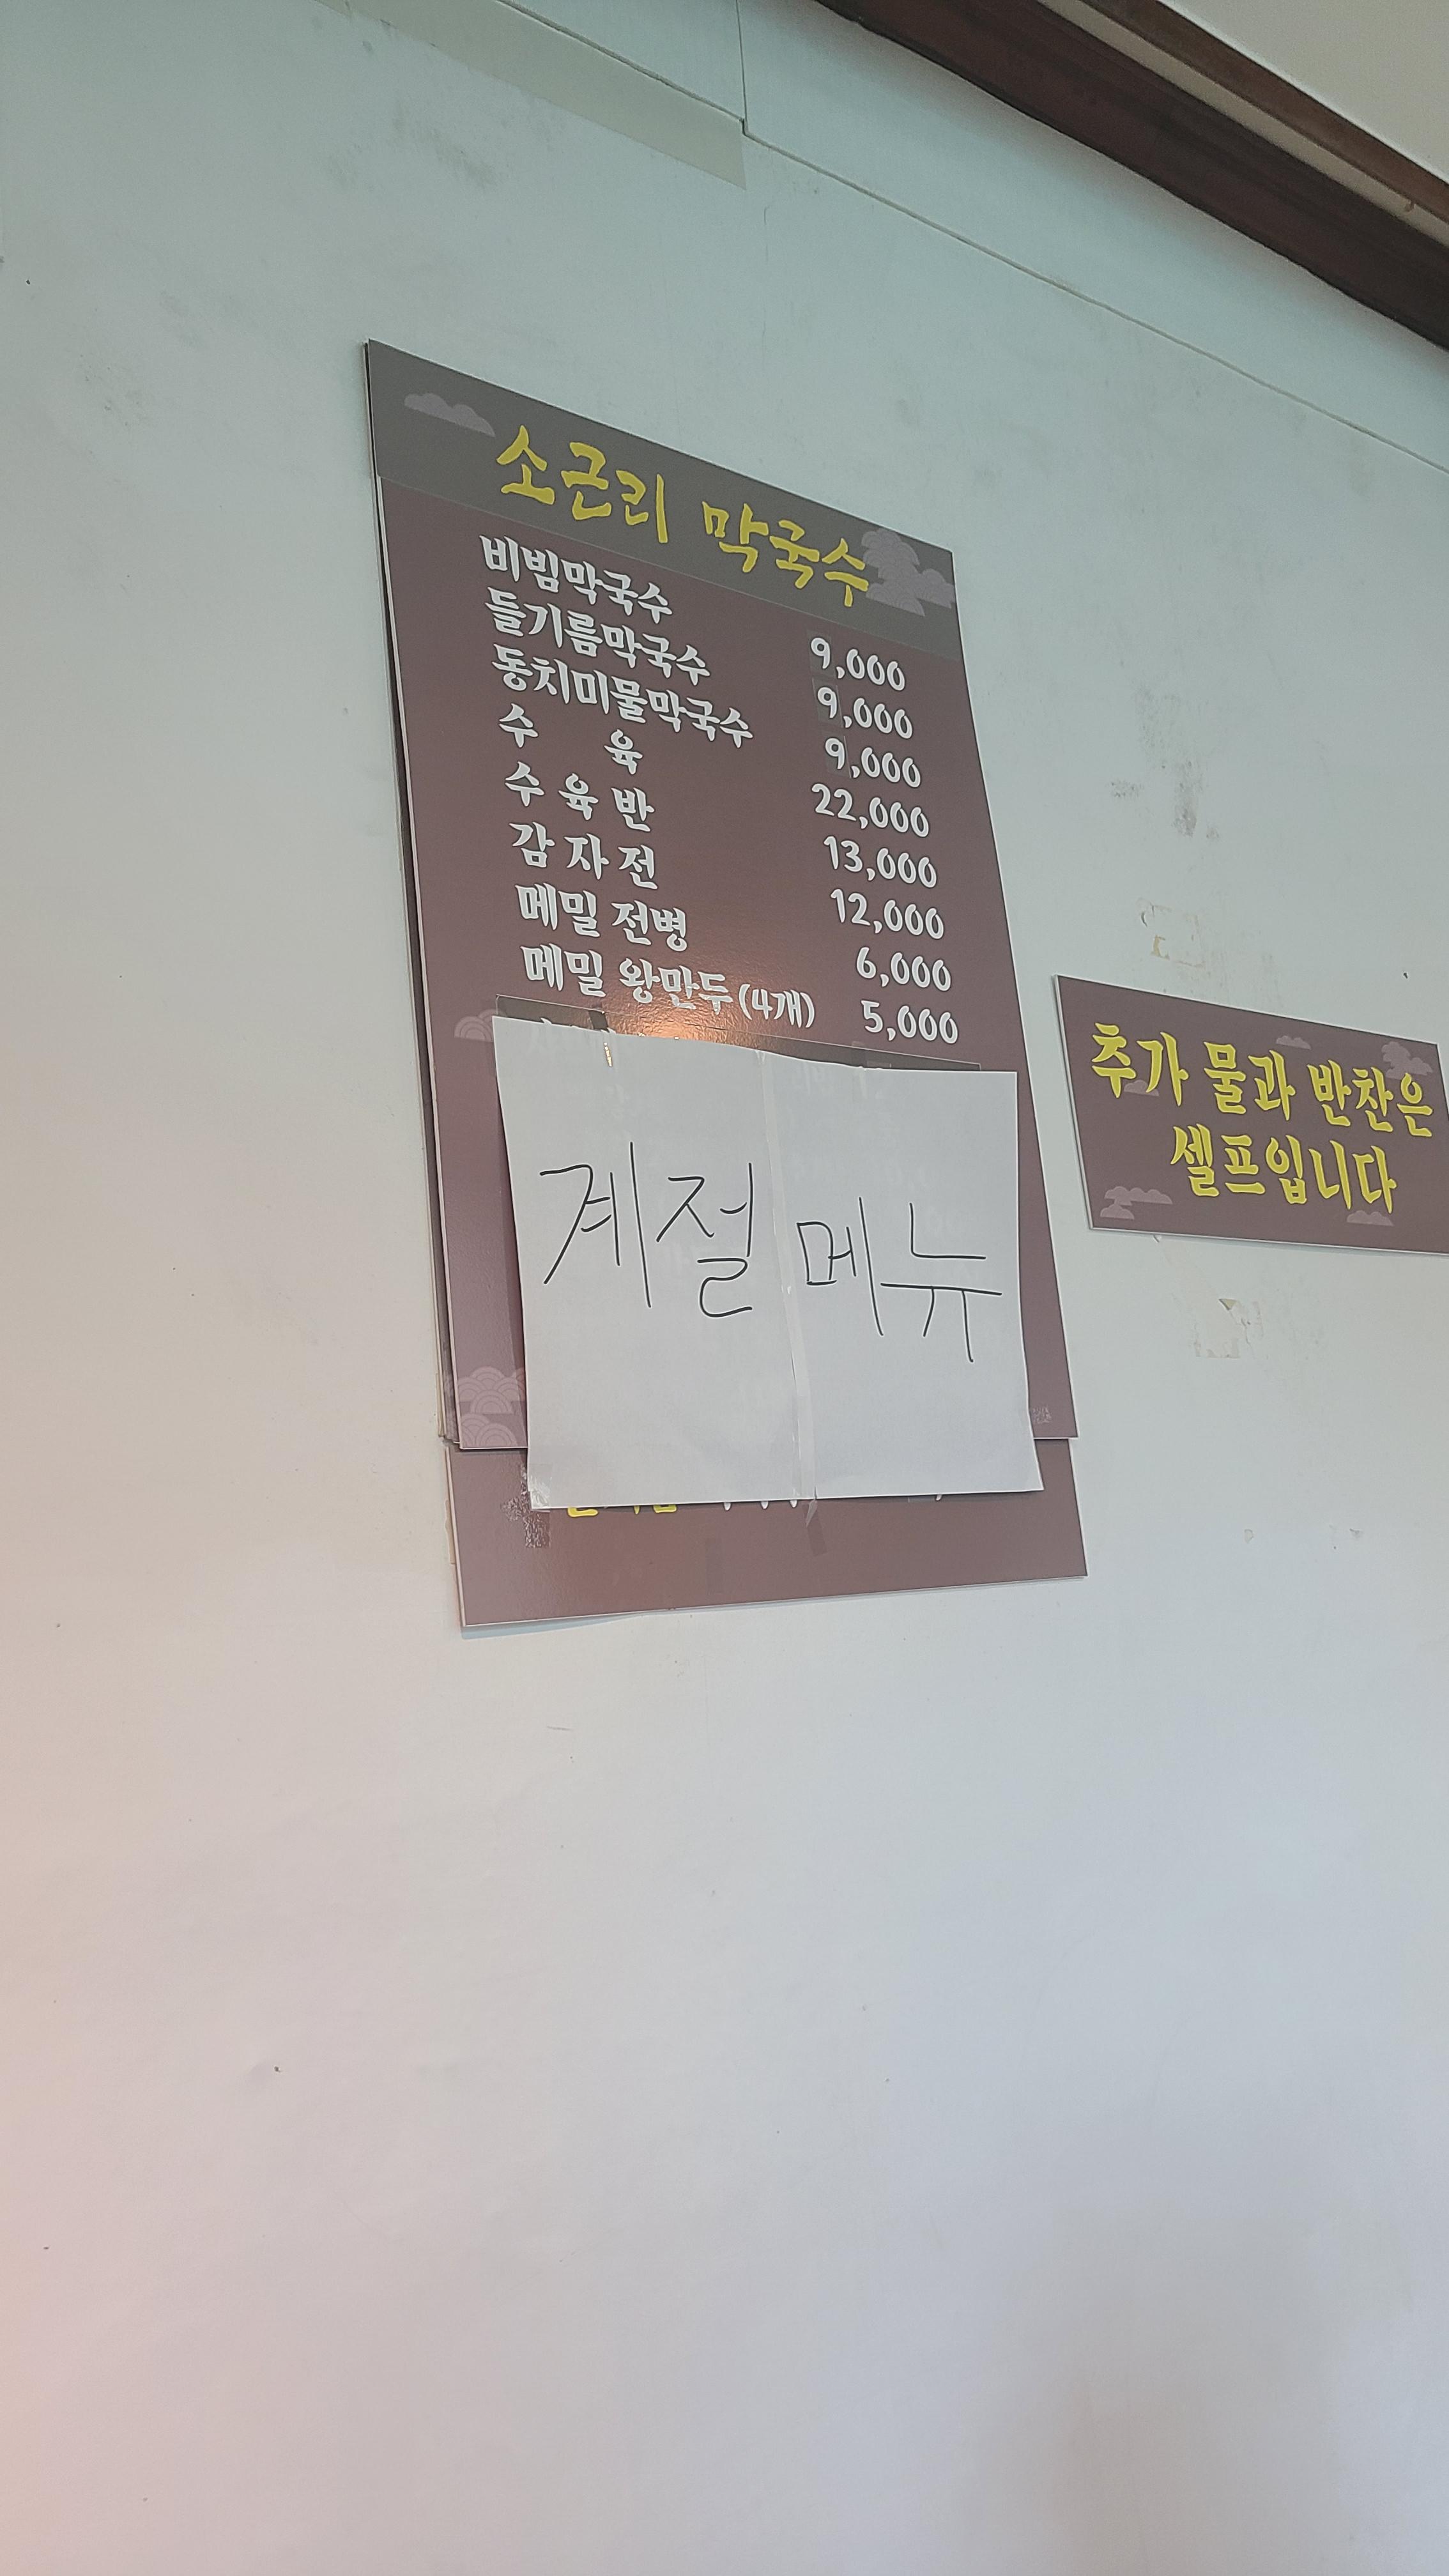 소근리 막국수
비빔막국수 9,000
들기름막국수 9,000
동치미물막국수 9,000
수 육 22,000
수 육 반 13,000
감 자 전 12,000
메밀 전병 6,000
메밀 왕만두(4개) 5,000
계절 메뉴
추가 물과 반찬은
셀프입니다